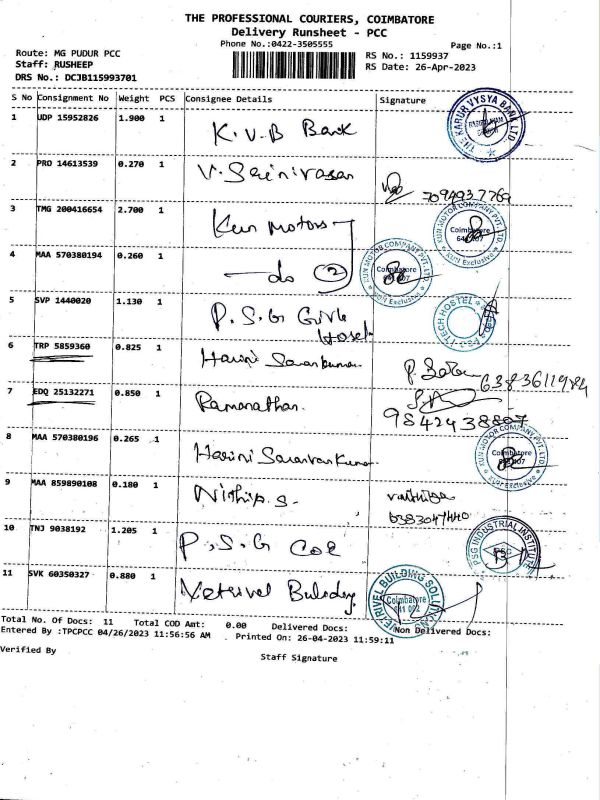 THE PROFESSIONAL COURIERS, COIMBATORE
Delivery Runsheet - PCC
Phone No.:0422-3505555
Page No.:1
Route: MG PUDUR PCC
RS No.: 1159937
Staff: RUSHEEP
RS Date: 26-Apr-2023
DRS No.: DCJB115993701
S No Consignment No Weight PCS Consignee Details Signature
1 UDP 15952826 1.900 1 K.V.B Bank
THE KARUR VYSYA BANK LTD
2 PRO 14613539 0.270 1 V. Srinivasan
7094937769
3 TMG 200416654 2.700 1 Kun Motors
KUN MOTOR COMPANY PVT. LTD. Coimbatore KUN Exclusive
4 MAA 570380194 0.260 1 do 2
KUN MOTOR COMPANY PVT. LTD. Coimbatore KUN Exclusive
5 SVP 1440020 1.130 1 P.S.G Girls
Hostel
TECH HOSTEL
6 TRP 5859360 0.825 1 Harini Saravkumar
7 EDQ 25132271 0.850 1 Ramanathan.
8 MAA 570380196 0.265 1 Harini Saravankumar
KUN MOTOR COMPANY PVT. LTD. Coimbatore KUN Exclusive
9 MAA 859890108 0.180 1 Nithip.s.
10 TNJ 9038192 1.205 1 P.S.G COE
PSG INDUSTRIAL INSTITUTE PSG
11 SVK 60350327 0.880 1 Vetrivel
VETRIVEL BUILDING SOLUTIONS Coimbatore
Total No. Of Docs: 11 Total COD Amt: 0.00 Delivered Docs: Non Delivered Docs:
Entered By :TPCPCC 04/26/2023 11:56:56 AM Printed On: 26-04-2023 11:59:11
Verified By
Staff Signature